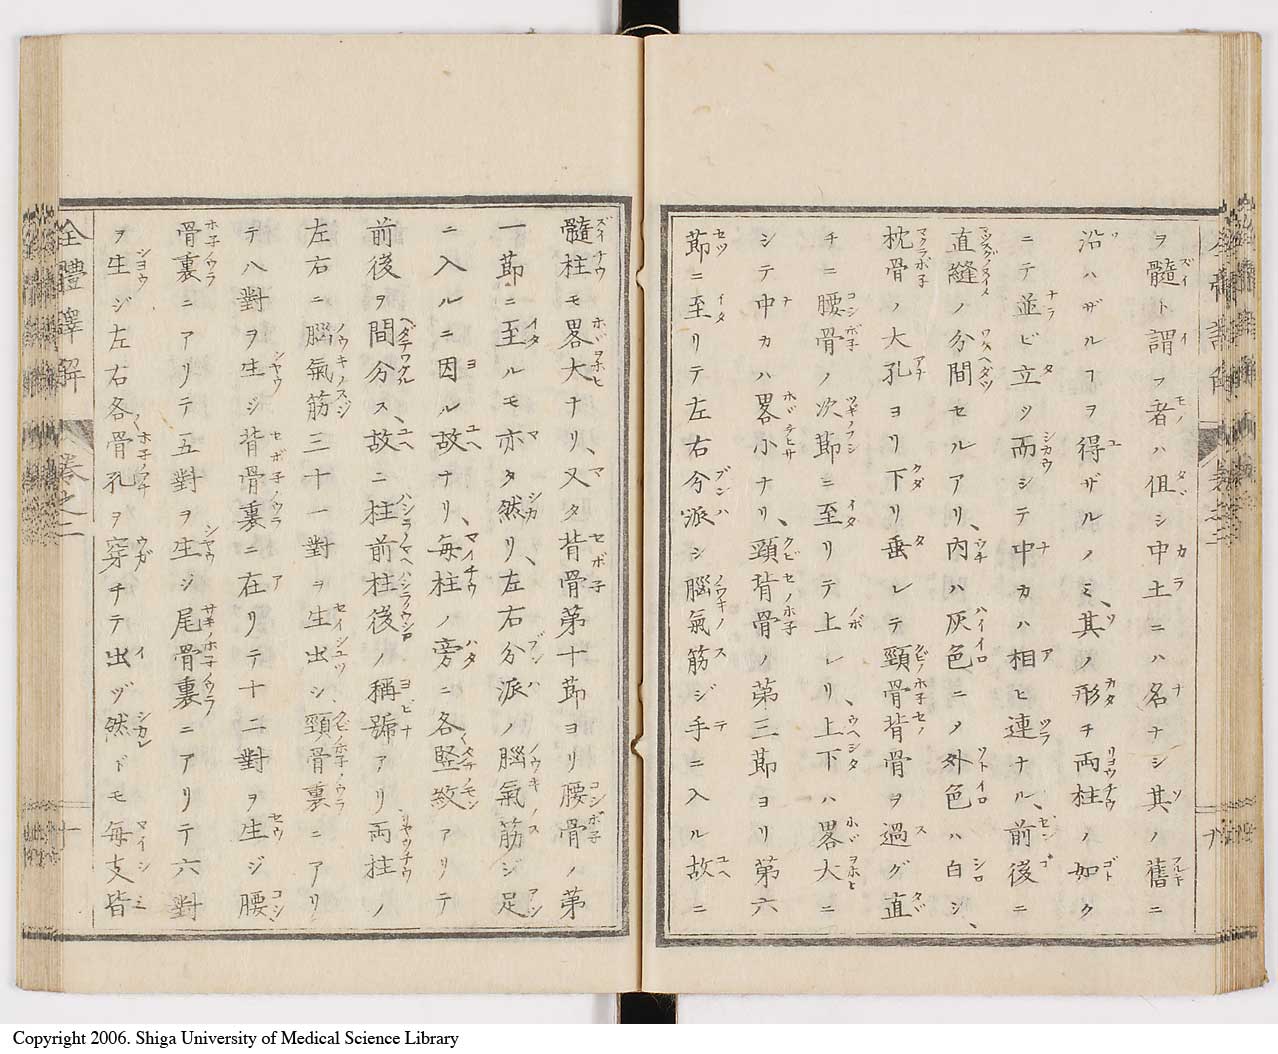 ヲ髓ト謂フ者ハ但シ中土ニハ名ナシ其ノ舊ニ
沿ハザルヿヲ得ザルノミ、其ノ形チ両柱ノ如ク
ニテ並ビ立ツ而シテ中カハ相ヒ連ナル、前後ニ
直縫ノ分間セルアリ、内ハ灰色ニノ外色ハ白シ、
枕骨ノ大孔ヨリ下リ垂レテ頸骨背骨ヲ過グ直
チニ腰骨ノ次節ニ至リテ上レリ、上下ハ畧大ニ
シテ中カハ畧小ナリ、頸背骨ノ第三節ヨリ第六
節ニ至リテ左右分派シ腦氣筋ジ手ニ入ル故ニ
髓柱モ畧大ナリ、又タ背骨第十節ヨリ腰骨ノ第
一節ニ至ルモ亦タ然リ、左右分派ノ腦氣筋ジ足
ニ入ルニ因ル故ナリ、毎柱ノ旁ニ各竪紋アリテ
前後ヲ間分ス、故ニ柱前柱後ノ稱號アリ両柱ノ
左右ニ腦氣筋三十一對ヲ生出シ、頸骨裏ニアリ
テ八對ヲ生ジ背骨裏ニ在リテ十二對ヲ生ジ腰
骨裏ニアリテ五對ヲ生ジ尾骨裏ニアリテ六對
ヲ生ジ左右各骨孔ヲ穿チテ出ヅ然ドモ毎支皆
全體譯解
卷之二
十
Copyright 2006. Shiga University of Medical Science Library